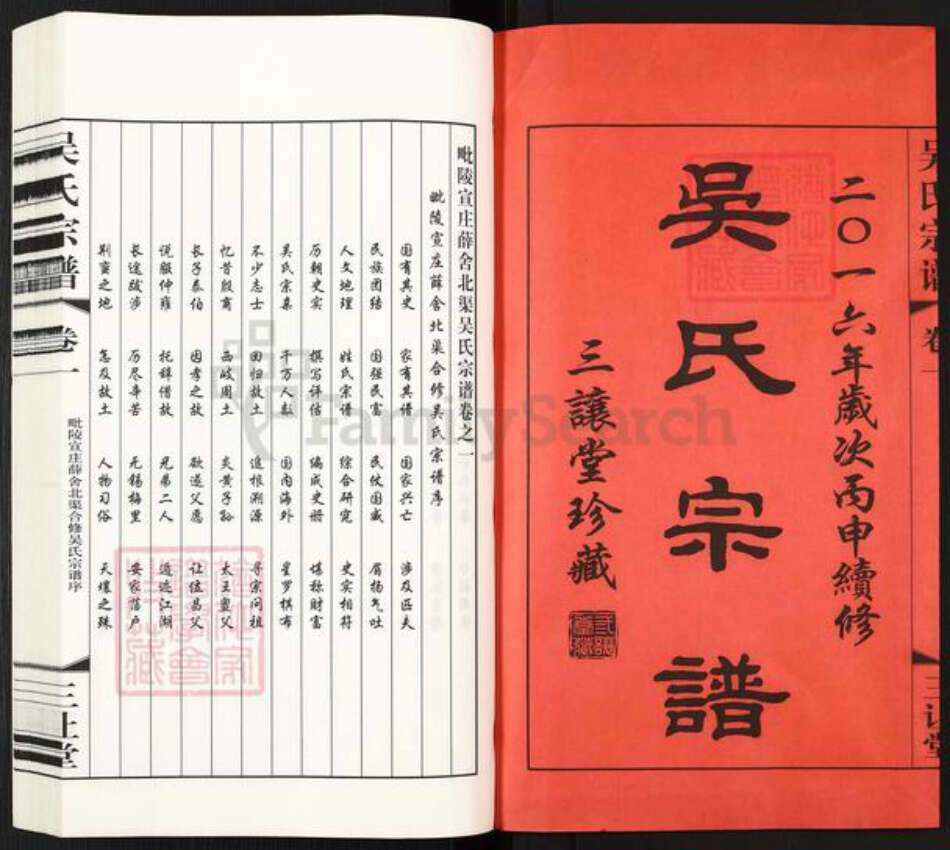 二〇一六年歲次丙申續修
吳氏宗譜
三讓堂珍藏
吴氏宗谱
卷一
三让堂
毗陵宣庄薛舍北渠吴氏宗谱卷之一
毗陵宣庄薛舍北渠合修吴氏宗谱序
国有其史 家有其谱 国家兴亡 涉及匹夫
民族团结 国强民富 民仗国威 眉扬气吐
人文地理 姓氏宗谱 综合研究 史实相符
历朝史实 撰写评估 编成史册 堪称财富
吴氏宗亲 千万人数 国内海外 星罗棋布
不少志士 回归故土 追根溯源 寻宗问祖
忆昔殷商 西岐周土 炎黄子孙 太王亶父
长子泰伯 因孝之故 欲遂父愿 让位昌父
说服仲雍 托辞借故 兄弟二人 遁迹江湖
长途跋涉 历尽辛苦 无锡梅里 安家落户
荆蛮之地 怎及故土 人物习俗 天壤之殊
吴氏宗谱
卷一
毗陵宣庄薛舍北渠合修吴氏宗谱序
三让堂
FamilySearch